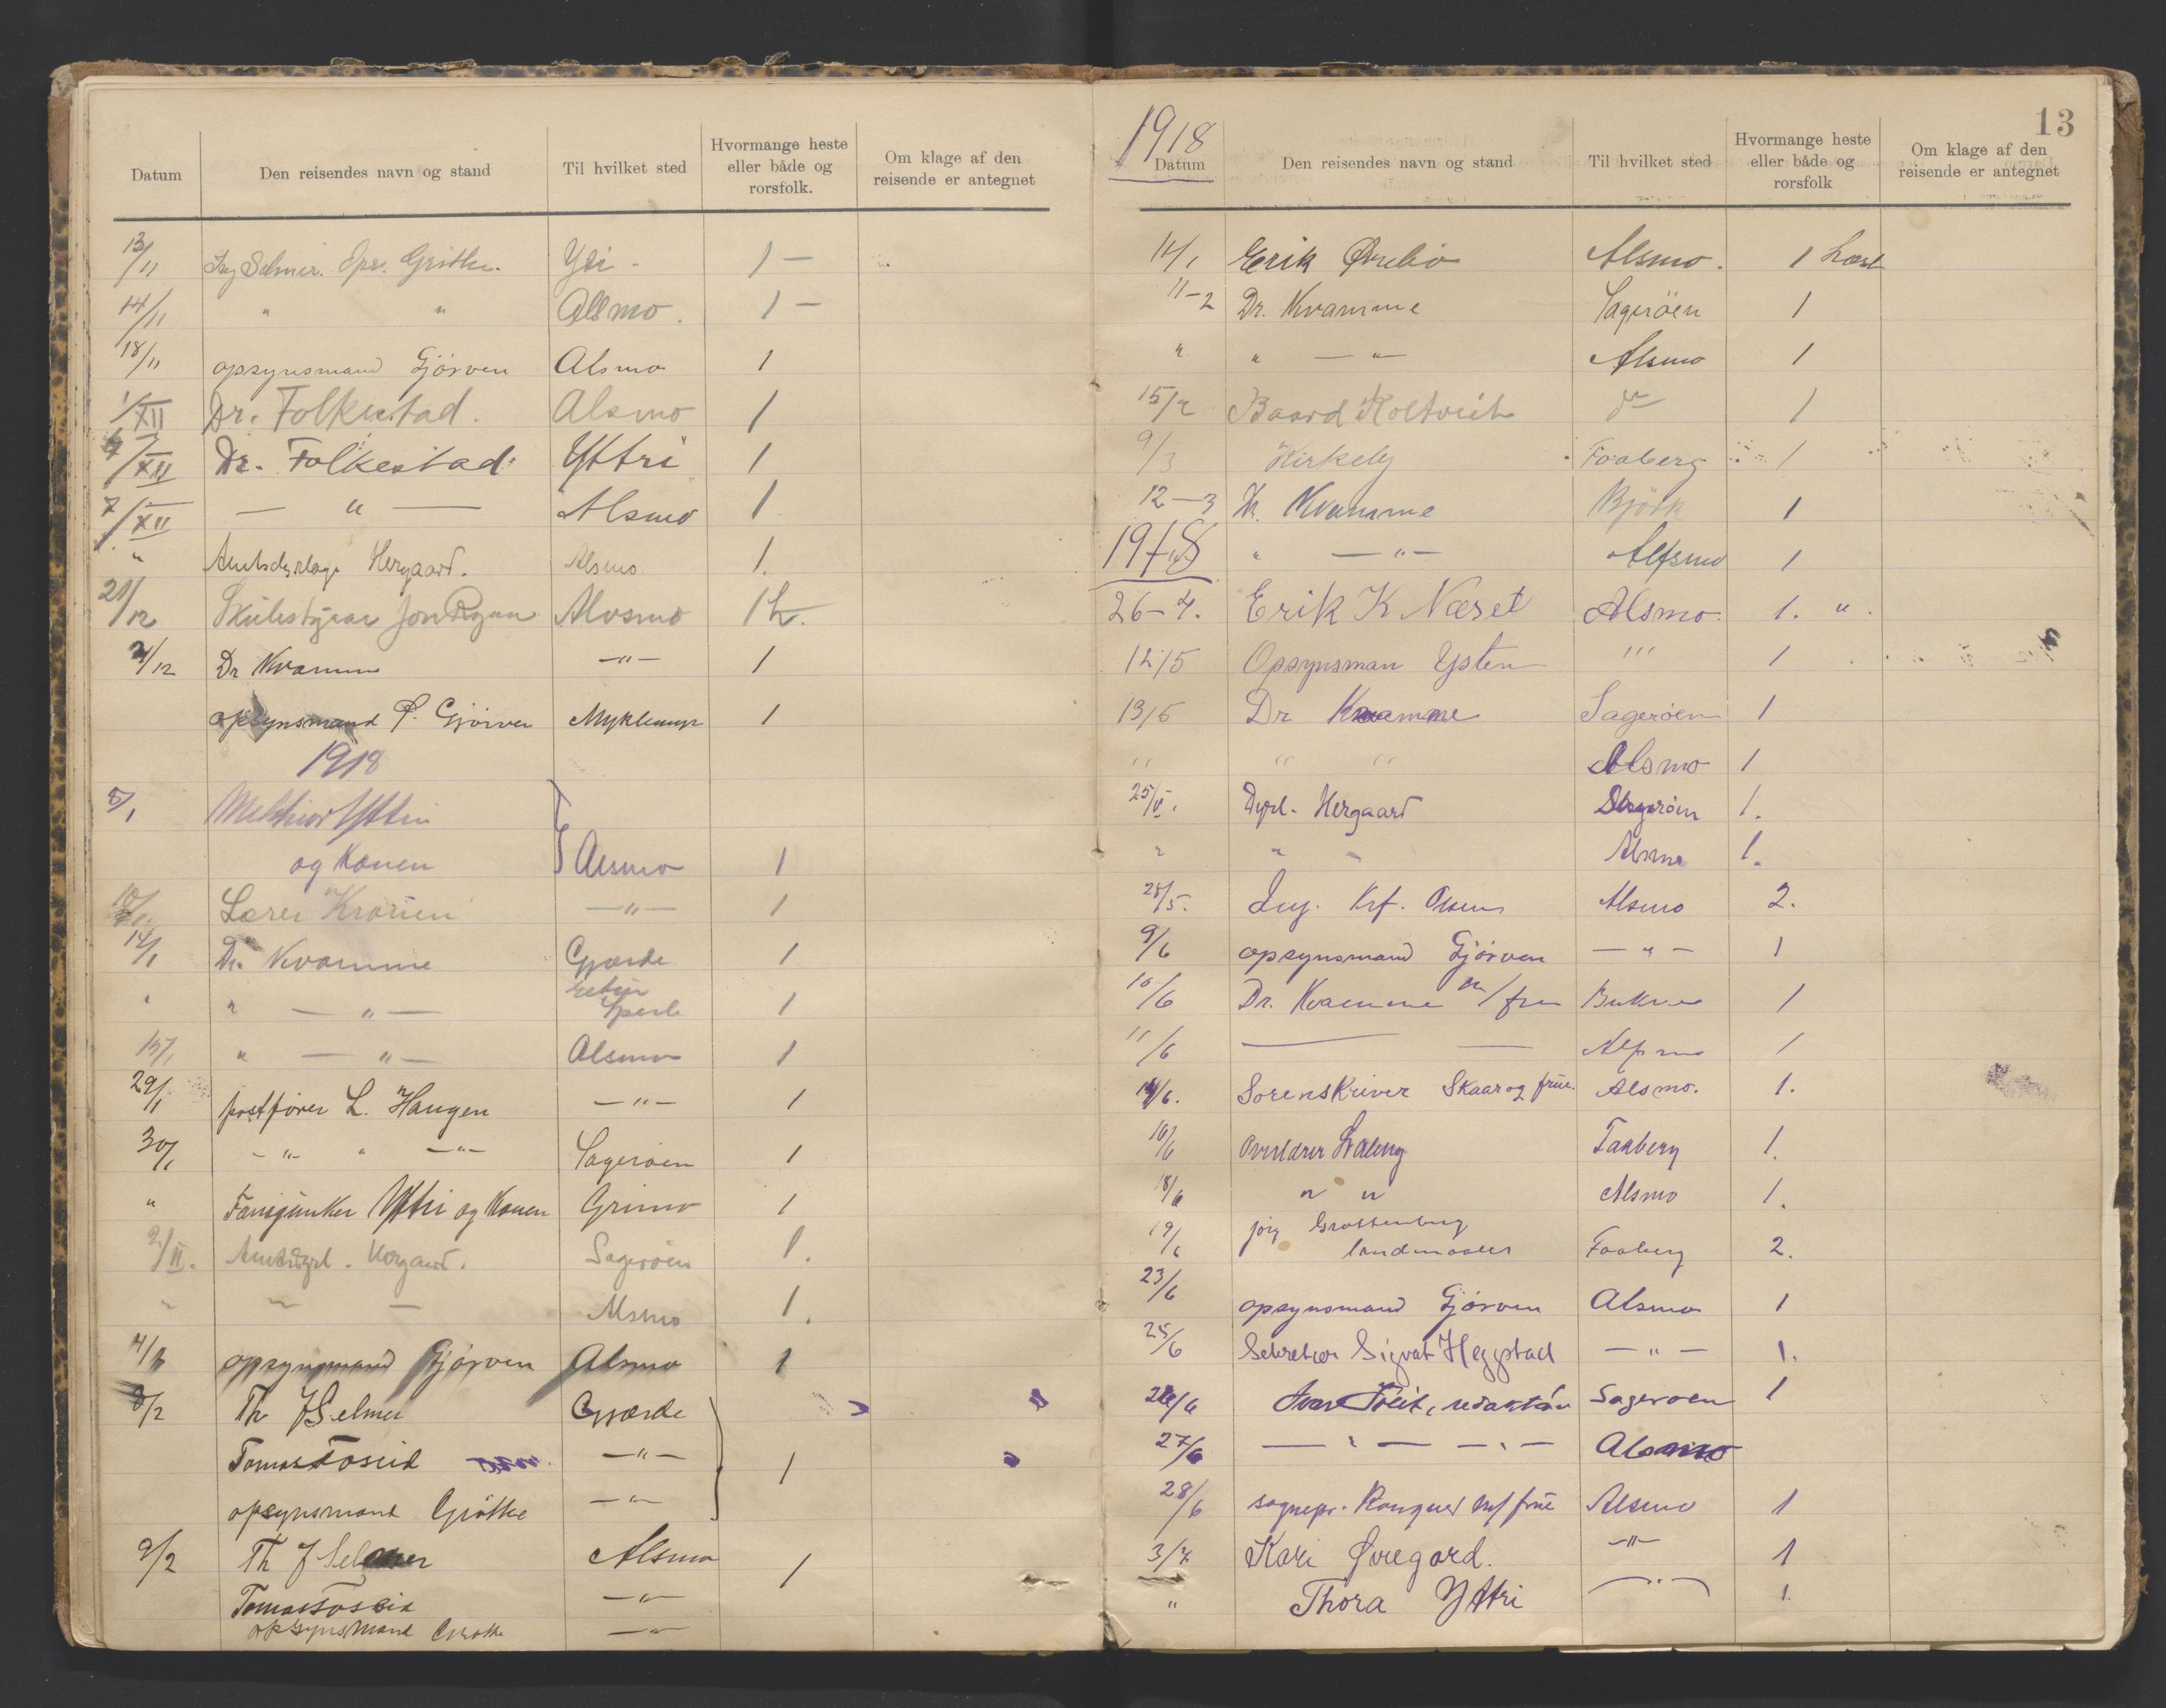 Datum Den reisendes navn og stand Til hvilket sted Hvormange heste eller både og rorsfolk. Om klage af den reisende er antegnet
13/11 Ing Selmer. Ops. Grøthe. Ytri - 1 -
14/11 " " Alsmo. 1 -
18/11 opsynsmand Gjörven Alsmo 1
1/XII Dr. Folkestad. Alsmo 1
/XII Dr. Folkestad. Yttri 1
7/XII — " — Alsmo 1
" Amtsdyrlæge Hergaard. Alsmo 1.
21/12 Skulestyrar Jon Alvsmo 1 h.
21/12 Dr Kvamme —"— 1
opsynsmand P. Gjörven Myklemyr 1
1918
5/1 Melchior Yttri
og Konen Alsmo 1
10/1 Lærer —"— 1
14/1 Dr. Kvamme Gjærde 1
" " — " — 1
15/1 " — " — Alsmo 1
29/1 postfører L. Haugen —"— 1
30/1 - " - " —"— Sagerøen 1
" Fanejunker Yttri og Konen Grimo 1
2/II. Amtsdyrl. Hergaard. Sagerøen 1.
" " — Alsmo 1.
4/2 opsynsmand Gjörven Alsmo 1
8/2 Th J Selmer Gjærde
Tomas Foseid —"— 1
opsynsmand Grøthe —"—
9/2 Th J Selmer Alsmo 1
Tomas Foseid —"—
opsynsmand Grøthe —"—
13
1918
Datum Den reisendes navn og stand Til hvilket sted Hvormange heste eller både og rorsfolk Om klage af den reisende er antegnet
14/1 Erik Øvrebö Alsmo. 1 hæst
11-2 Dr. Kvamme Sageröen 1
" " — " — Alsmo 1
15/2 Baard Koltveit do 1
9/3 Kirkeby Faaberg 1
12-3 Dr. Kvamme Björk 1
1918 " — " — Alfsmo 1
26-4. Erik K Næset Alsmo. 1. ".
12/5 Opsynsman Ysten ''' 1
13/5 Dr Kvamme Sagerøen 1
" " " Alsmo 1
25/V. Dyrl. Hergaard Sagerøen 1.
" " " Alsmo 1.
28/5. Ing. Krf. Olsen Alsmo 2.
9/6 opsynsmand Gjörven — " — 1
10/6 Dr. Kvamme m/ frue 1
11/6 — — 1
14/6. Sorenskriver Skaar og frue. Alsmo. 1.
16/6 Overlærer Faaberg 1.
18/6 " " Alsmo 1.
19/6 landmaaler Faaberg 2.
23/6 opsynsmand Gjörven Alsmo 1
25/6 Sekretær Sigvat Heggstad — " — 1.
26/6 redaktør Sagerøen 1
27/6 — " — — " — Alsmo
28/6 sognepr. m/ frue Alsmo 1
3/7 Kari Øvregard. —"— 1
" Thora Yttri —"— 1.